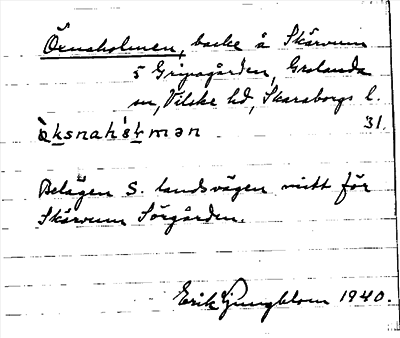 Öxnaholmen, backe å Skärvum
5 Gripsgården, Grolanda
sn, Vilske hd, Skaraborgs l.
ö̀ksnahɷ́ɫmən 31.
Belägen S. landsvägen mitt för
Skärvum Sörgården.
Erik Ljungblom 1940.